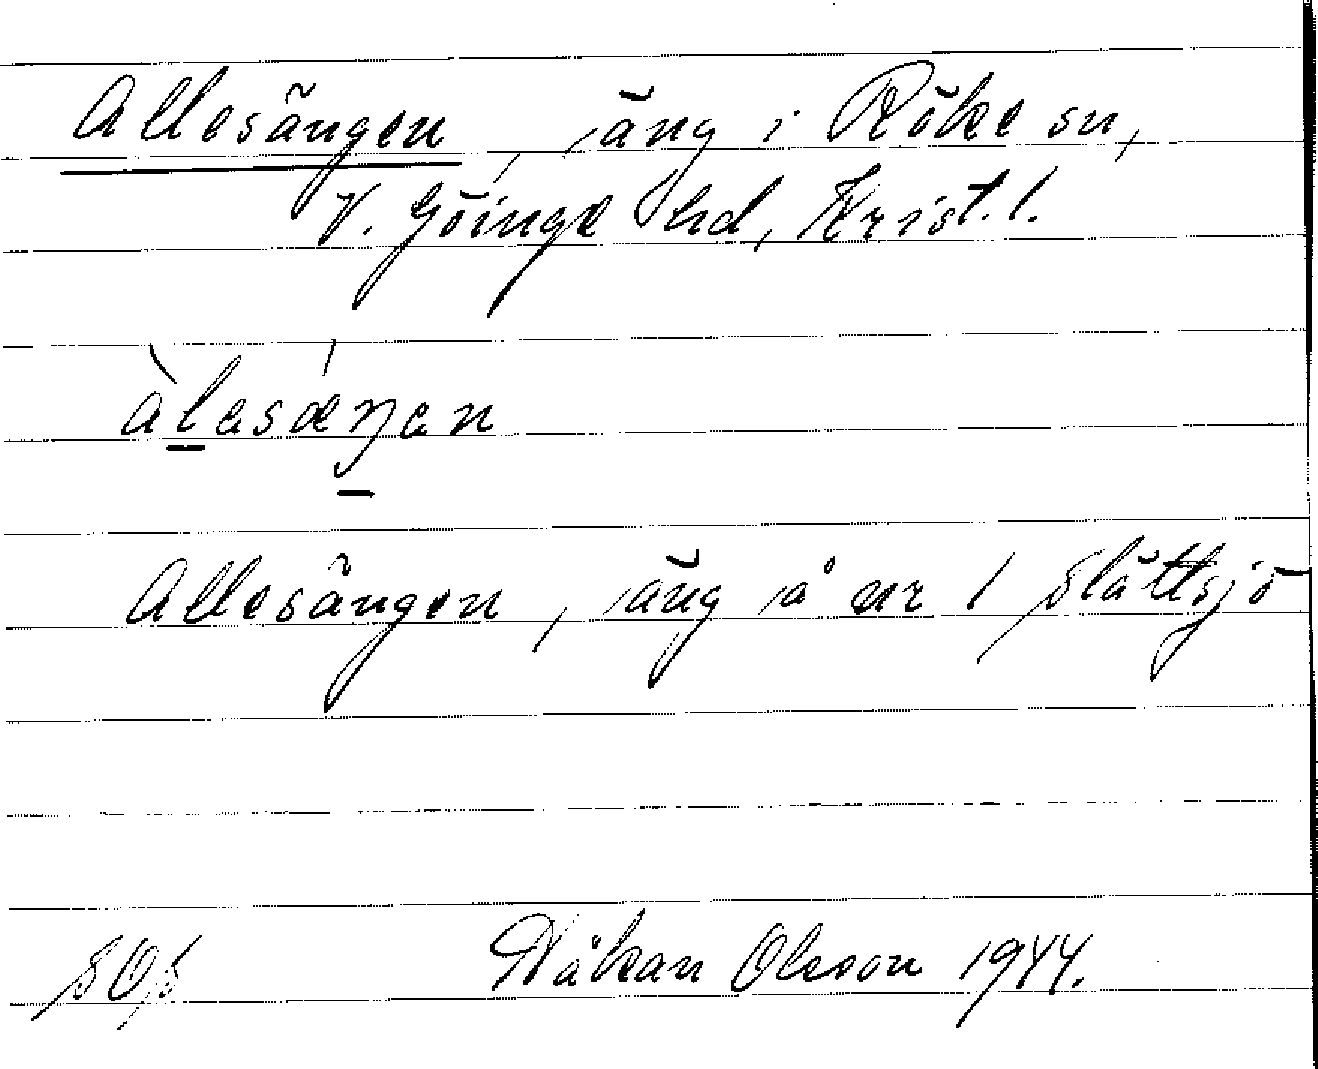 Allesängen, äng i Röke sn,
V. Göinge hd, Krist. l.
àlesæŋen
Allesängen, äng å nr 1 Slättsjö
Håkan Olsson 1944.